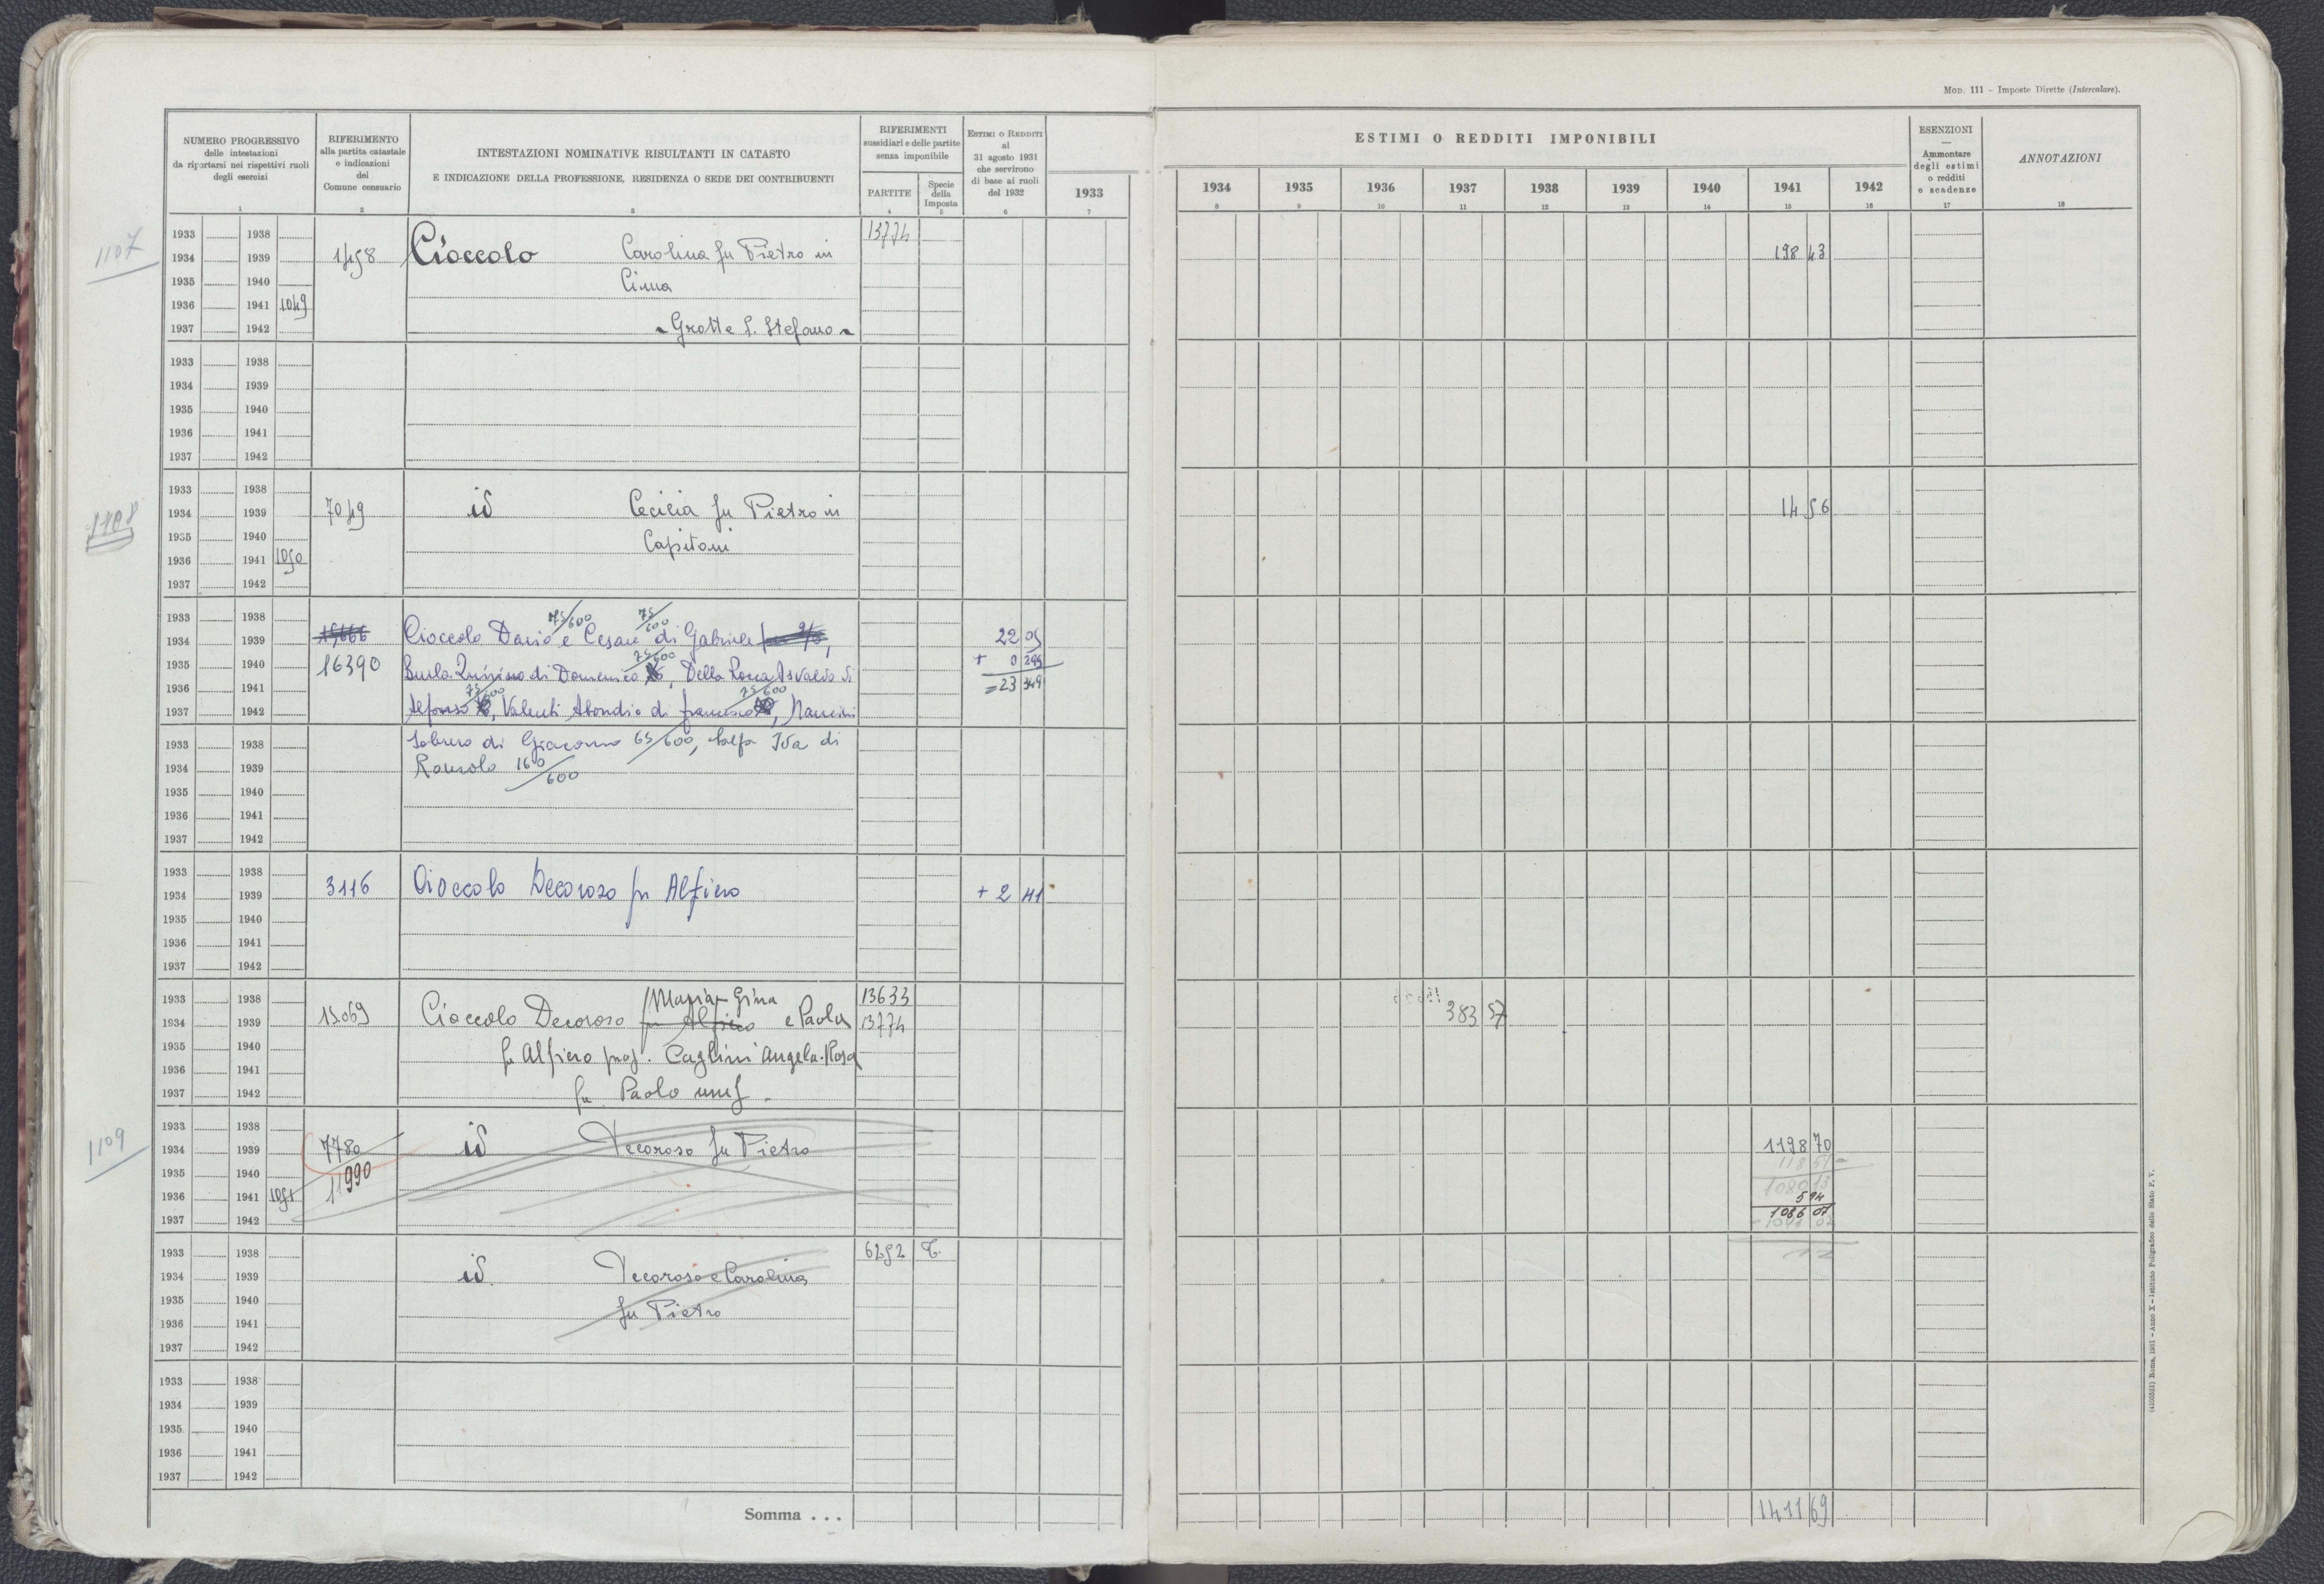 Mod. 111 – Imposte Dirette (Intercalare).
NUMERO PROGRESSIVO
delle intestazioni
da riportarsi nei rispettivi ruoli
degli esercizi
1
RIFERIMENTO
alla partita catastale
e indicazioni
del
Comune censuario
2
INTESTAZIONI NOMINATIVE RISULTANTI IN CATASTO
E INDICAZIONE DELLA PROFESSIONE, RESIDENZA O SEDE DEI CONTRIBUENTI
3
RIFERIMENTI
sussidiari e delle partite
senza imponibile
PARTITE
4
Specie
della
Imposta
5
ESTIMI O REDDITI
al
31 agosto 1931
che servirono
di base ai ruoli
del 1932
6
1933
7
ESTIMI O REDDITI IMPONIBILI
1934 1935 1936 1937 1938 1939 1940 1941 1942
8 9 10 11 12 13 14 15 16
ESENZIONI
—
Ammontare
degli estimi
o redditi
e scadenze
17
ANNOTAZIONI
18
1107
1933 1938 13774
1934 1939 1458 Cioccolo Carolina fu Pietro in 198 43
1935 1940 Cima
1936 1941 1049
1937 1942 Grotte S. Stefano
1933 1938
1934 1939
1935 1940
1936 1941
1937 1942
1108
1933 1938
1934 1939 7049 id Cecilia fu Pietro in 14 56
1935 1940 Capitoni
1936 1941 1050
1937 1942
1933 1938 75/600 75/600
1934 1939 15666 Cioccolo Dario e Cesare di Gabriele 22 05
1935 1940 16390 Burla Quirino di Domenico 75/600, Della Rocca Osvaldo di + 0 295
1936 1941 = 23 349
1937 1942 Alfonso 75/600, Valenti Abondio di Francesco 75/600, Mancini
1933 1938 di Giacomo 65/600, Ida di
1934 1939 Romolo 160/600
1935 1940
1936 1941
1937 1942
1933 1938
1934 1939 3116 Cioccolo Decoroso fu Alfiero + 2 41
1935 1940
1936 1941
1937 1942
1933 1938 Maria Gina 13633
1934 1939 15069 Cioccolo Decoroso fu Alfiero e Paola 13774 383 57
1935 1940 fu Alfiero prop. Caglini Angela-Rosa
1936 1941
1937 1942 fu Paolo usuf.
1109
1933 1938
1934 1939 7780 id Decoroso fu Pietro 1198 70
1935 1940 11990 118 57 –
1936 1941 1051 1080 13
5 94
1937 1942 1086 07
1933 1938 6252 T.
1934 1939 id. Decoroso e Carolina
1935 1940
1936 1941 fu Pietro
1937 1942
1933 1938
1934 1939
1935 1940
1936 1941
1937 1942
Somma . . . 1411 69
(4103321) Roma, 1931 – Anno X – Istituto Poligrafico dello Stato P. V.